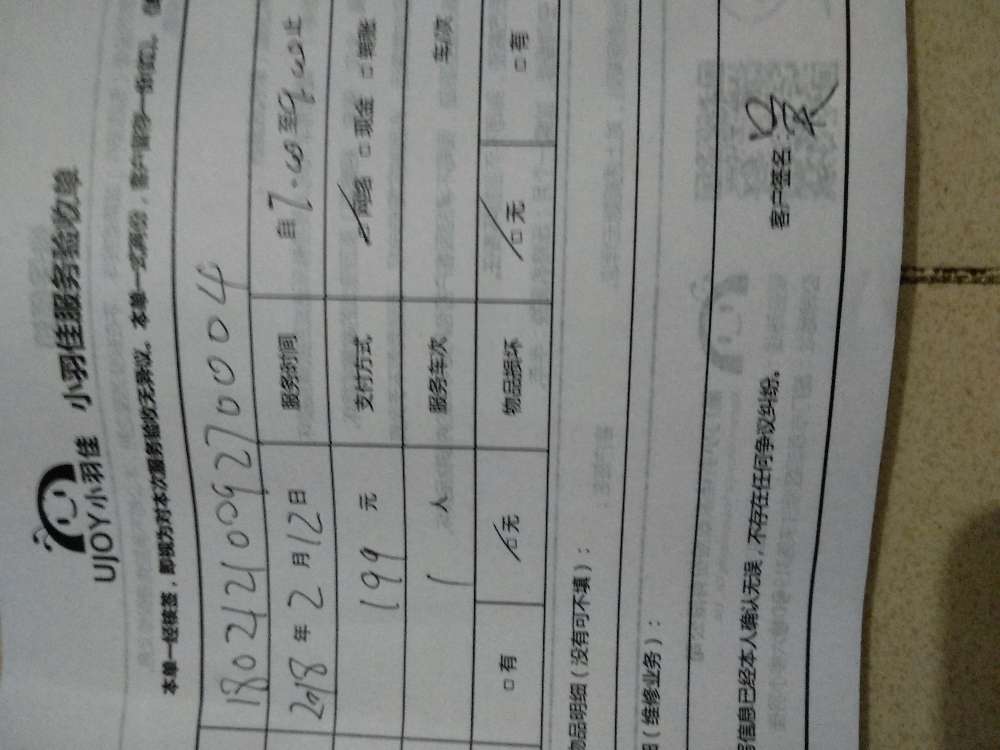 UJOY小羽佳 小羽佳服务验收单
本单一经核签，即视为对本次服务验收无异议。本单一式两份，客户留存一份
180212100927 0004
2018年2月12日 服务时间 自7.00至9.00止
199元 支付方式 网络 □现金 □转账
1人 服务车次 车/次
□有 □无 物品损坏 □无 □有
物品明细（没有可不填）：
（维修业务）：
信息已经本人确认无误，不存在任何争议纠纷。 客户签名 吴